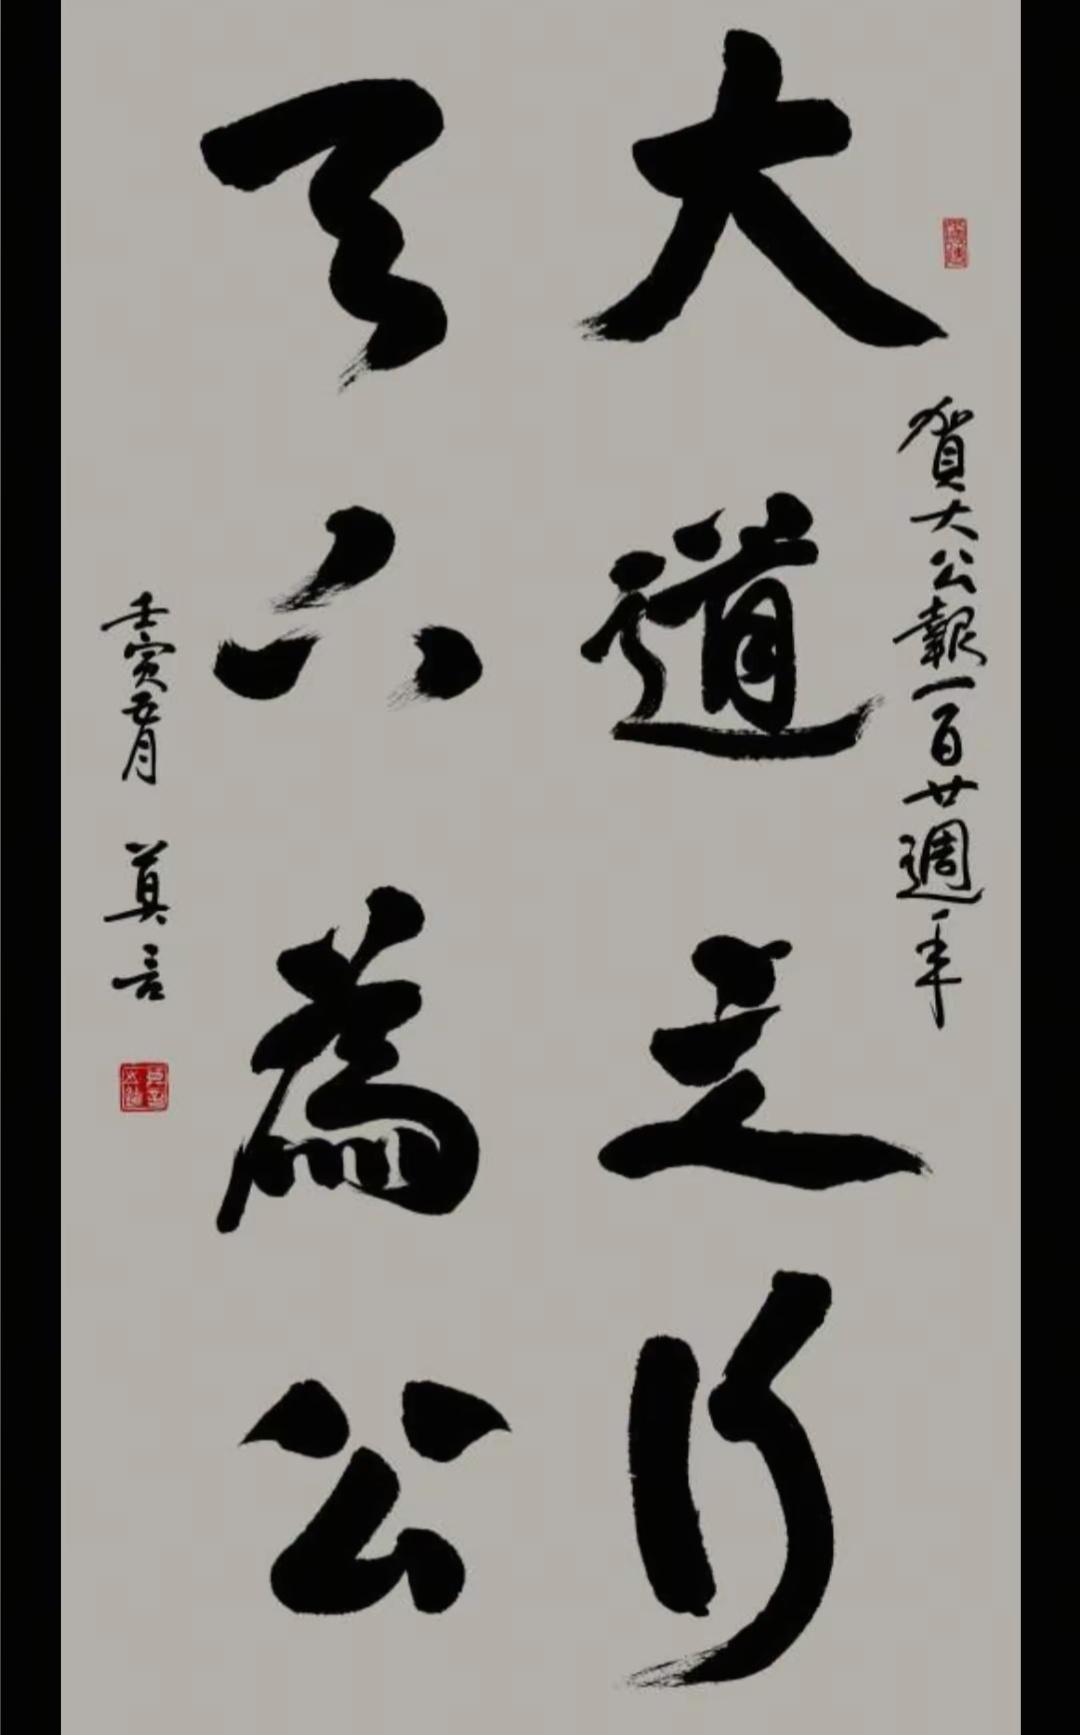 賀大公報一百廿週年
大道之行
天下為公
壬寅五月 莫言